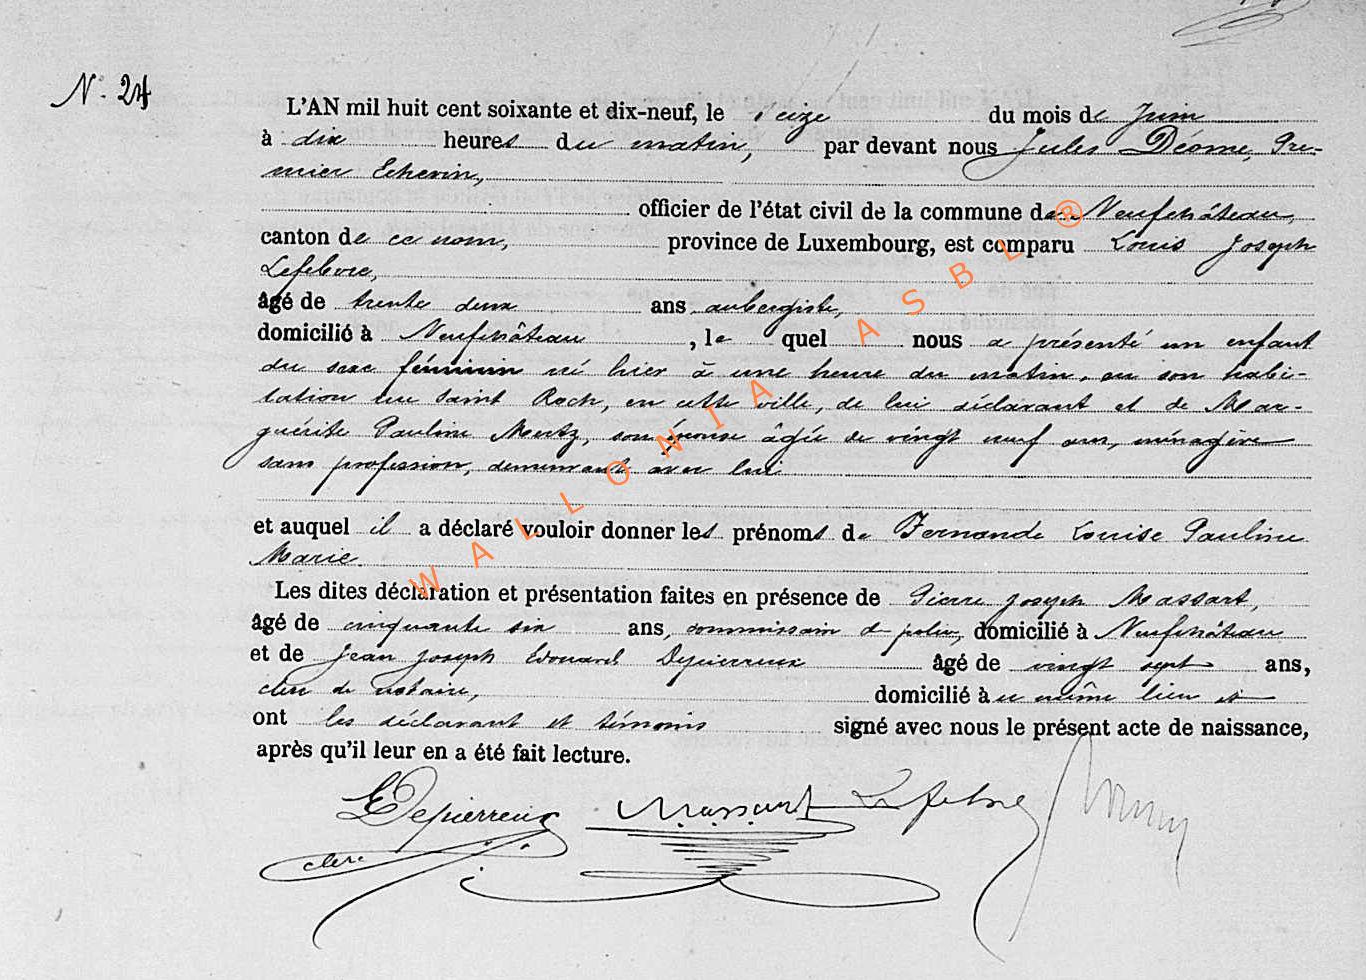 N. 24
L'AN mil huit cent soixante et dix-neuf, le seize du mois de Juin
à dix heures du matin, par devant nous Jules Déome, Pre-
mier Echevin,
officier de l'état civil de la commune de Neufchâteau,
canton de ce nom, province de Luxembourg, est comparu Louis Joseph
Lefebvre,
âgé de trente deux ans aubergiste,
domicilié à Neufchâteau, le quel nous a présenté un enfant
du sexe féminin né hier à une heure du matin, en son habi-
tation rue Saint Roch, en cette ville, de lui déclarant et de Mar-
guérite Pauline Mertz, son épouse âgée de vingt neuf ans, ménagère
sans profession, demeurant avec lui
et auquel il a déclaré vouloir donner les prénoms de Fernande Louise Pauline
Marie.
Les dites déclaration et présentation faites en présence de Pierre Joseph Massart,
âgé de cinquante six ans, commissaire de police, domicilié à Neufchâteau
et de Jean Joseph Edouard Depierreux âgé de vingt sept ans,
clerc de notaire, domicilié au même lieu et
ont les déclarant et témoins signé avec nous le présent acte de naissance,
après qu'il leur en a été fait lecture.
EDepierreux Massart Lefebvre
clerc
WALLONIA ASBL ®